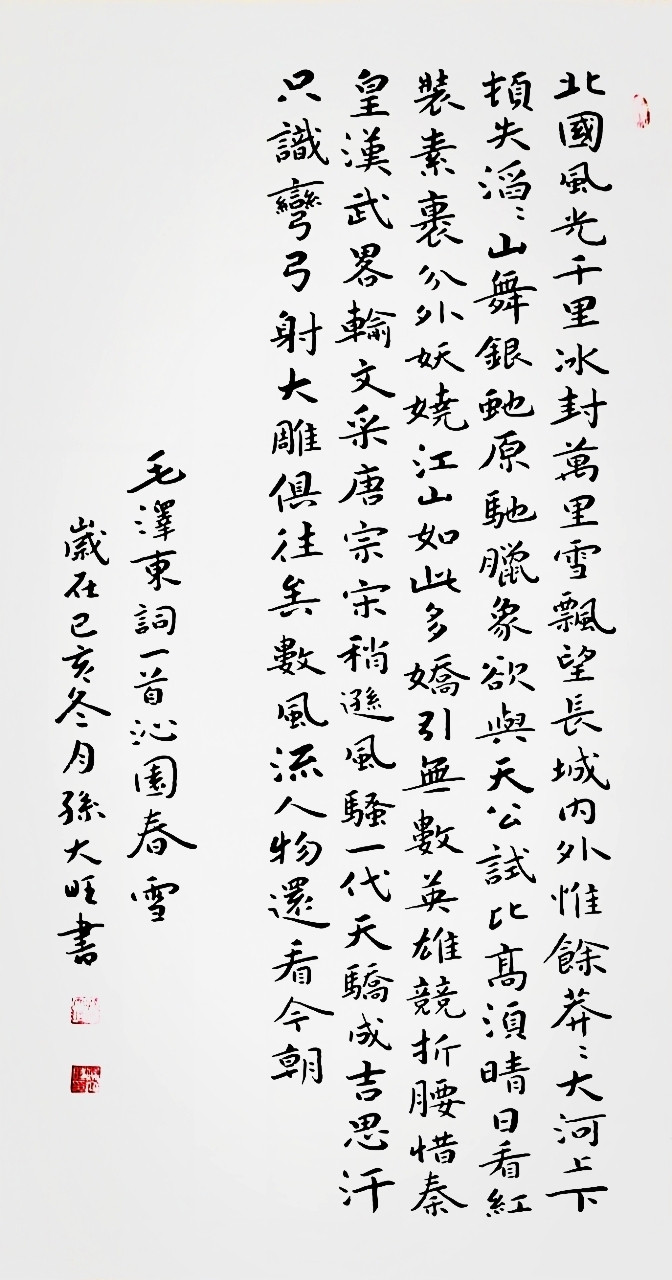 北國風光千里冰封萬里雪飄望長城內外惟餘莽〻大河上下
頓失滔〻山舞銀虵原馳臘象欲與天公試比高須晴日看紅
裝素裹分外妖嬈江山如此多嬌引無數英雄競折腰惜秦
皇漢武畧輸文采唐宗宋稍遜風騷一代天驕成吉思汗
只識彎弓射大雕俱往矣數風流人物還看今朝
毛澤東詞一首沁園春雪
歲在己亥冬月孫大旺書